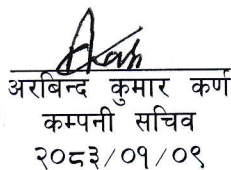 अरबिन्द कुमार कर्ण
कम्पनी सचिव
२०८३/०१/०९